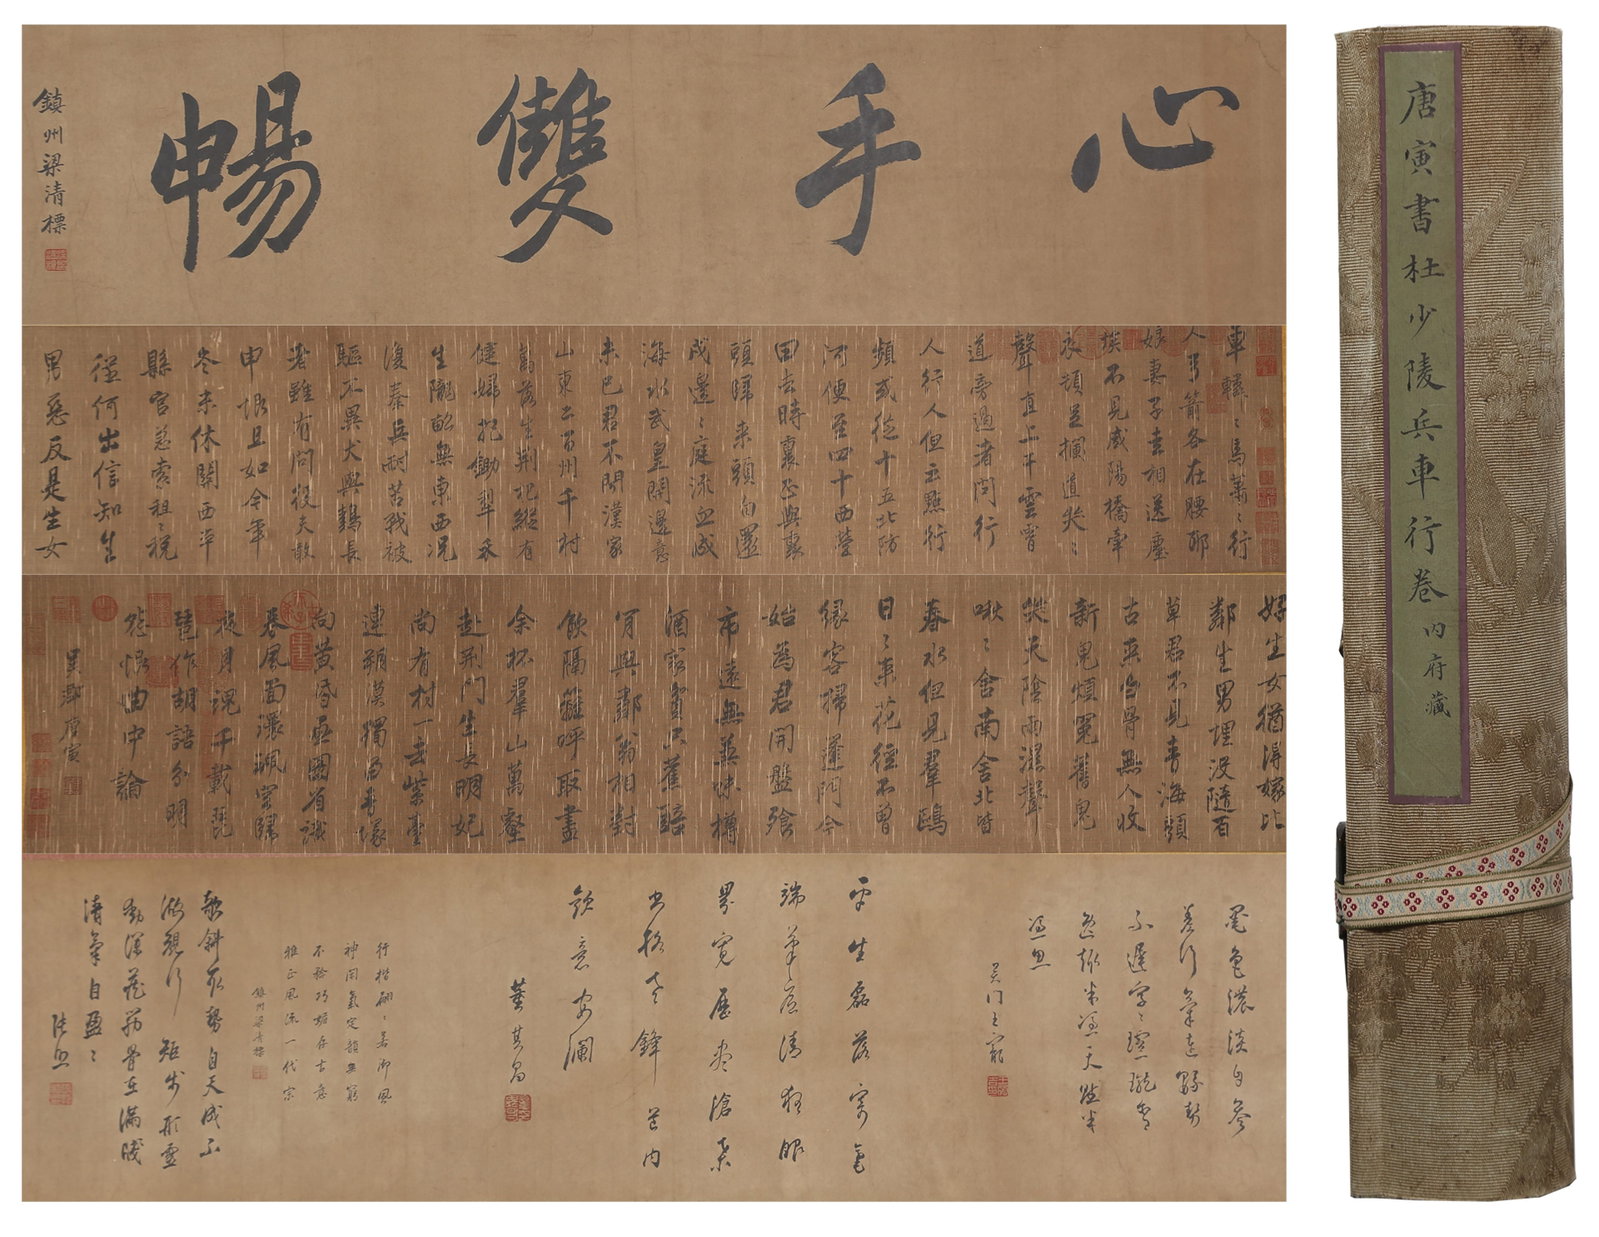 心手雙暢
鎮州梁清標
車轔〻馬蕭〻行
人弓箭各在腰耶
娘妻子走相送塵
埃不見咸陽橋牽
衣頓足攔道哭〻
聲直上干雲霄
道旁過者問行
人行人但云點行
頻或從十五北防
河便至四十西營
田去時裏正與裹
頭歸來頭白還
戍邊〻庭流血成
海水武皇開邊意
未已君不聞漢家
山東二百州千村
萬落生荊杞縱有
健婦把鋤犁禾
生隴畝無東西況
復秦兵耐苦戰被
驅不異犬與鷄長
者雖有問役夫敢
申恨且如今年
冬未休關西卒
縣官急索租〻稅
從何出信知生
男惡反是生女
好生女猶得嫁比
鄰生男埋沒隨百
草君不見青海頭
古來白骨無人收
新鬼煩冤舊鬼
哭天陰雨濕聲
啾〻舍南舍北皆
春水但見羣鷗
日〻來花徑不曾
緣客掃蓬門今
始為君開盤飱
市遠無兼味樽
酒家貧只舊醅
肯與鄰翁相對
飲隔籬呼取盡
余杯羣山萬壑
赴荊門生長明妃
尚有村一去紫臺
連朔漠獨留青塚
向黃昏畫圖省識
春風面環珮空歸
夜月魂千載琵
琶作胡語分明
怨恨曲中論
吳郡唐寅
墨色濃淡自參
差行氣連緜
平生磊落寄毫
端筆意清狂眼
界寬歷盡滄桑
格老鋒芒内
斂意安瀾
董其昌
行楷翩〻若御風
神閒氣定韻無窮
不矜巧媚存古意
雅正風流一代宗
鎮州梁清標
欹斜取勢自天成不
矩步形靈
動深藏筋骨在滿牋
清氣自盈〻
張照
唐寅書杜少陵兵車行卷 内府藏